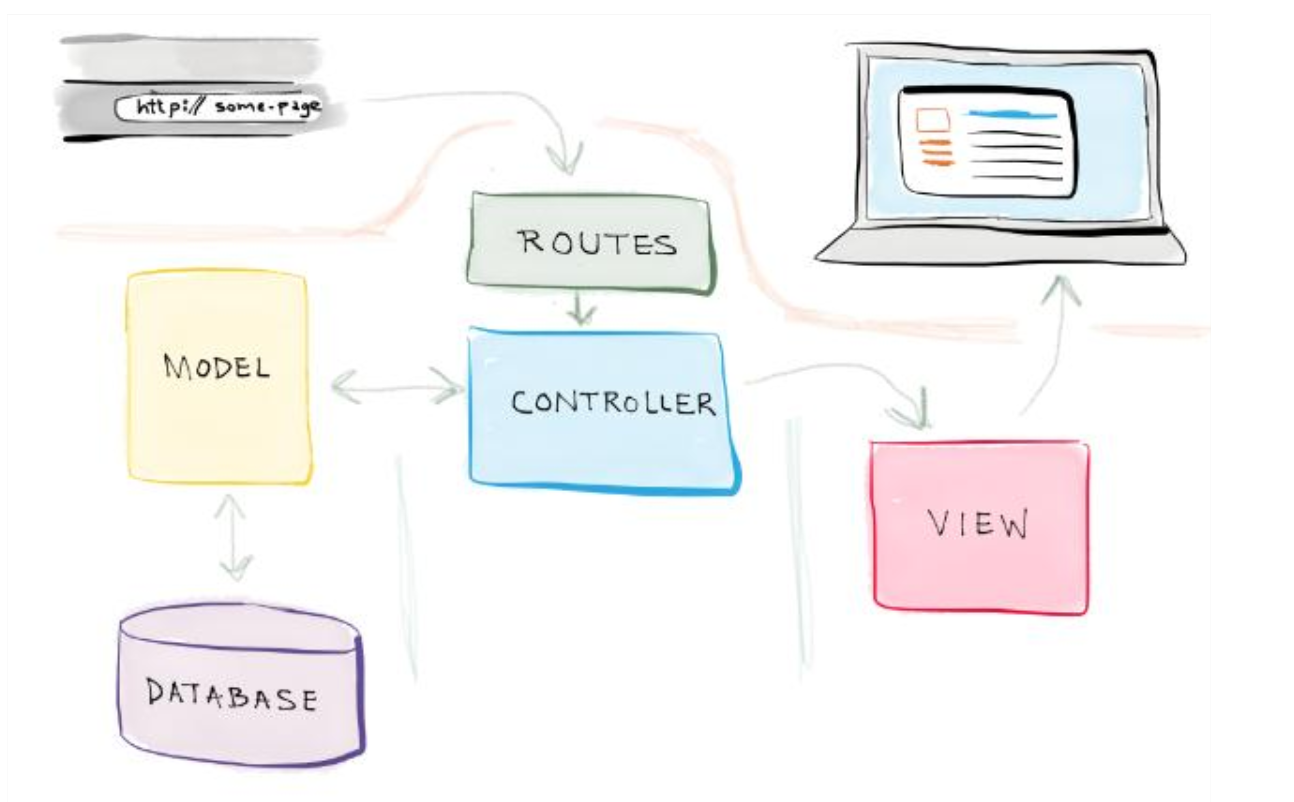 http:// some-page
ROUTES
MODEL
CONTROLLER
VIEW
DATABASE